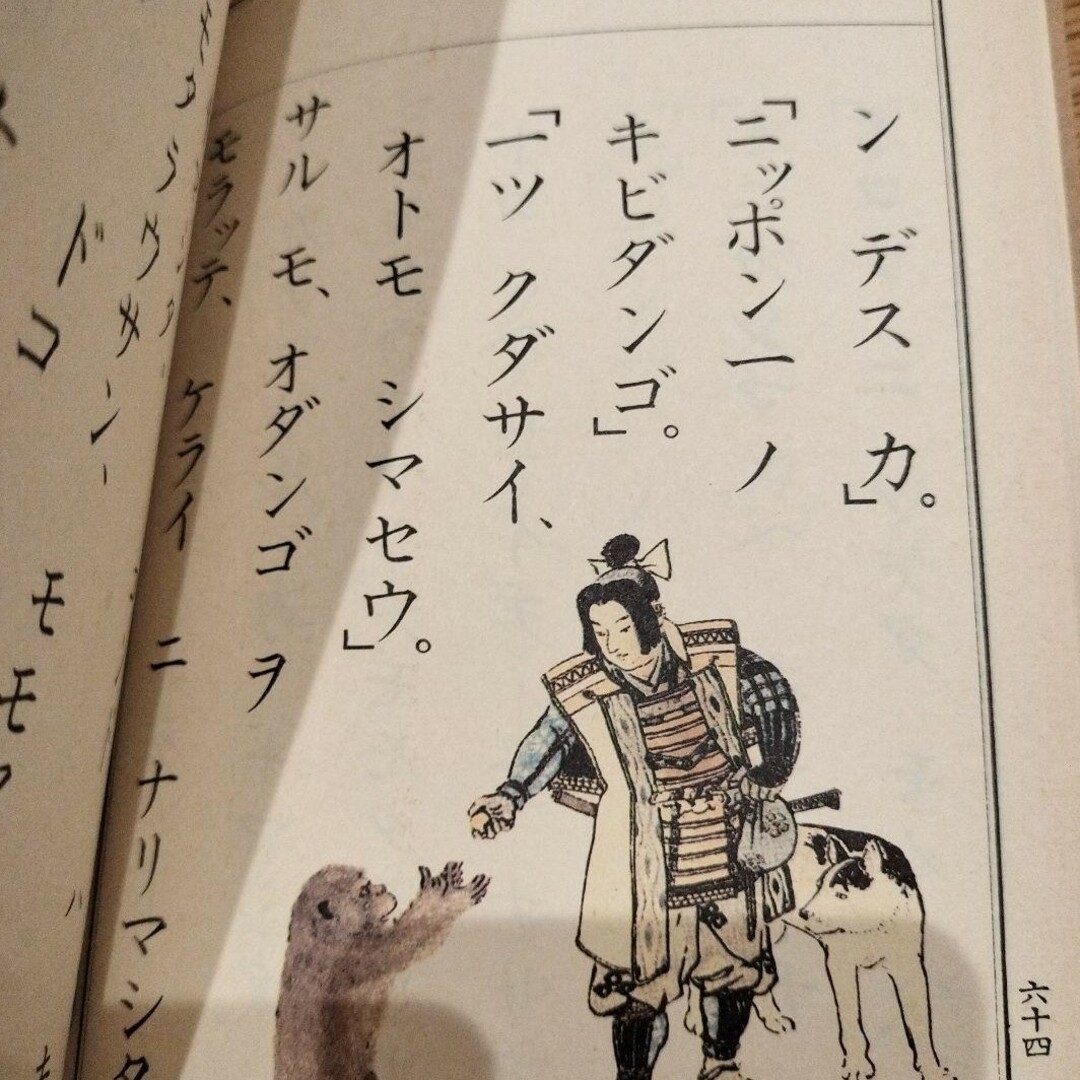 ン デス カ」。
「ニッポン一 ノ
キビダンゴ」。
「一ツ クダサイ、
オトモ シマセウ」。
サル モ、オダンゴ ヲ
モラッテ、 ケライ ニ ナリマシタ
六十四